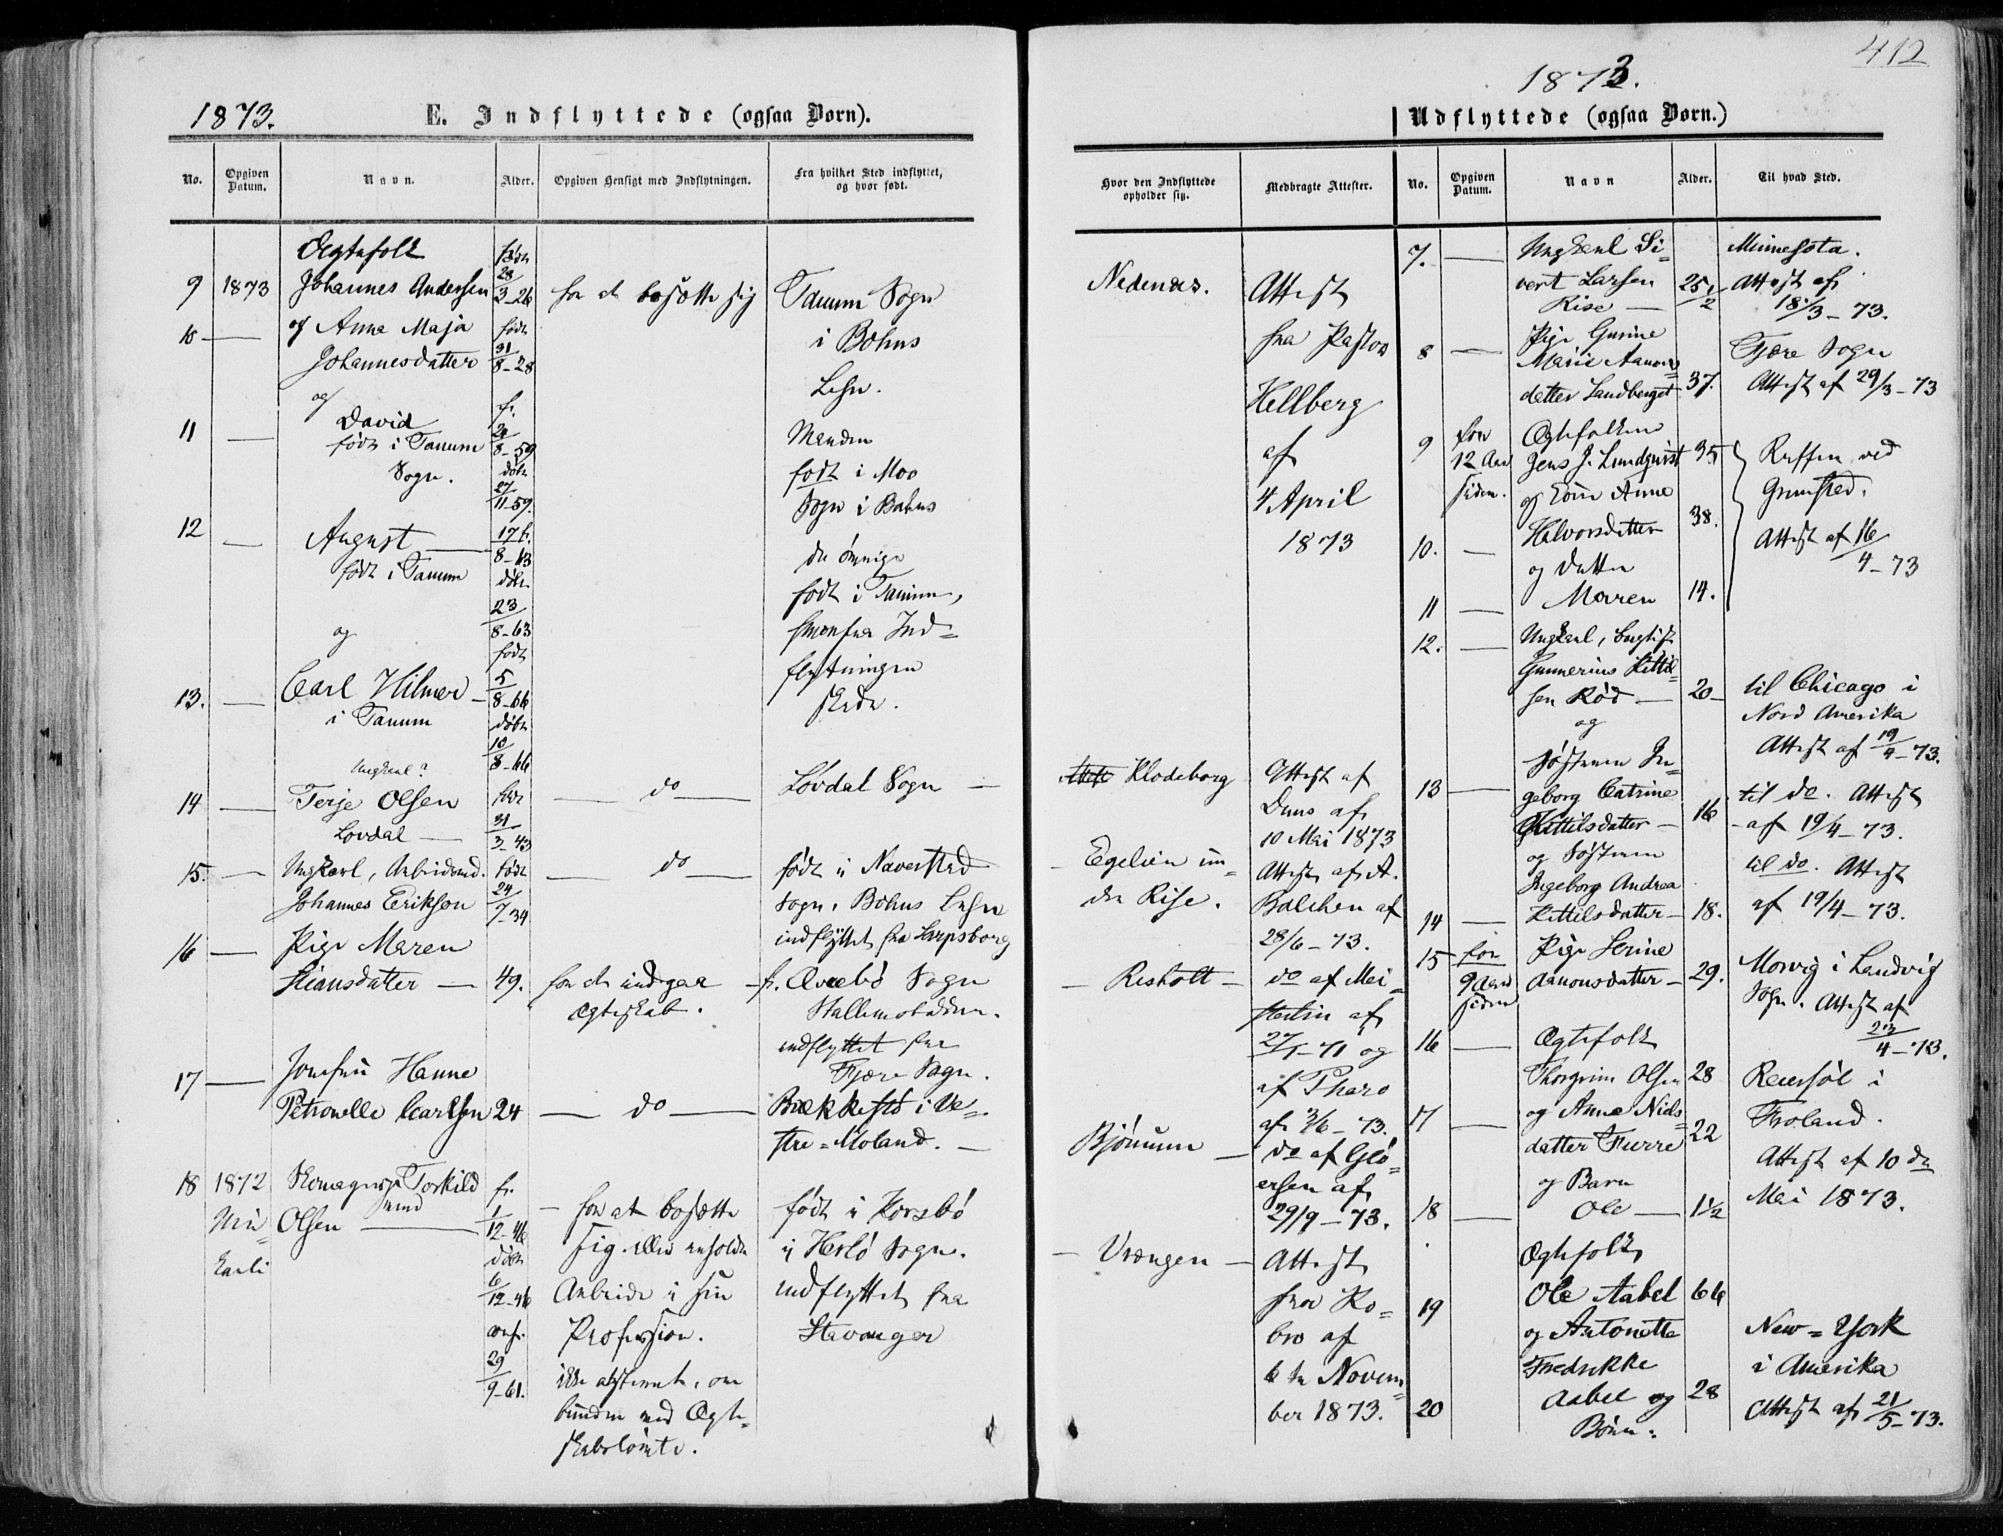 412
1873.
E. Indflyttede (ogsaa Børn).
1873.
Udflyttede (ogsaa Børn.)
No.
Opgiven Datum.
Navn.
Alder.
Opgiven Hensigt med Indflytningen.
Fra hvilket Sted indflyttet, og hvor født.
Hvor den Indflyttede opholder sig.
Medbragte Attester.
No.
Opgiven Datum.
Navn
Alder.
Til hvad Sted.
Ægtefolk
født
9 1873 Johannes Andersen 28/3-26 for at bosætte sig Tanum Sogn
10 — og Anne Maja født i Bohus
Johannesdatter 31/8-28 Lehn.
og
11 — David f. Manden
født i Tanum 8-59 født i Moo
Sogn. døbt 27/11-59. Sogn i Bahus
12 — August — 17 f. 8-63 de øvrige
født i Tanum døbt født i Tanum,
23/8-63 hvorfra Ind=
og født flytningen
13. — Carl Hilmer 5/8-66 skede.
i Tanum døbt
10/8-66
Ungkarl?
14 — Terje Olsen født — do — Løvdal Sogn —
Lovdal — 31/3-43
15. — Ungkarl, Arbeidsmd. født — do — født i Naverstad
Johannes Erikson 24/7-34 Sogn, Bohus Lehn
indflyttet fra Sarpsborg
16 — Pige Maren
datter — 49. for at indgaa f. Øvrebø Sogn
Ægteskab.
indflyttet fra
Fjære Sogn.
17 — Jomfru Hanne
Petronelle Carlsen 24 — do — i Ve=
stre=Moland. —
18 1872 Torkild f. — for at bosætte født i Korsbø
Olsen — 1/12-46 sig eller erholde i Herlø Sogn.
døbt 6/12-46 Arbeide i sin indflyttet fra
conf. Profession. Stavanger
29/9-61.
bunden ved Ægte=
skabsløvte.
Nedenæs. Attest
fra Pastor
Hellberg
af
4 April
1873
Klodeborg Attest af
Duus af
10 Mai 1873
— Egelien un
der Rise. Attest af A.
Balchen af
28/6-73.
— Resholt — do af Mei=
sterlin af
27/1-71 og
af Tharo
af 3/6-73.
Bjønnum — do af Glø=
ersen af
29/9-73.
— Vrængen — Attest
fra Ko=
bro af
6te Novem=
ber 1873.
7. — Ungkarl Si= Minnesota.
vert Larsen 25 1/2 Attest af
Rise — 18/3-73.
8 — Pige Gurine Fjære Sogn
Marie Aanons=
datter Sandberget 37. Attest af 29/3-73
9 for 12 Aar siden. Ægtefolkene
Jens J. Lundqvist 35 ved
og Kone Anne Grimsted.
10. — Halvorsdatter 38. Attest af 16/4-73
og Datter
11 — Maren 14.
12. — Ungkarl,
Gunnerius Kittil=
sen Rød — 20 — til Chicago i
og Nord Amerika
Attest af 19/4-73.
13 — Søsteren In=
geborg Catrine til do. Attest
Kittilsdatter — 16 af 19/4-73.
og Søsteren til do. Attest
Ingeborg Andrea
14 — Kittilsdatter — 18. af 19/4-73.
15 for 9 Aar siden Pige Serine Morvig i Landvig
Aanonsdatter — 29. Sogn. Attest af
23/4-73.
16 — Ægtefolk
Thorgrim Olsen 28 Reiersøl i
17 — og Anne Niels= Froland.
datter Furre 22 Attest af 10 de
og Barn Mai 1873.
18 — Ole — 1½
Ægtefolk
19 Ole Aabel 66
og Antonette New=York
Fredrikke i Amerika
20 Aabel og 28 Attest af 21/5-73.
Børn.